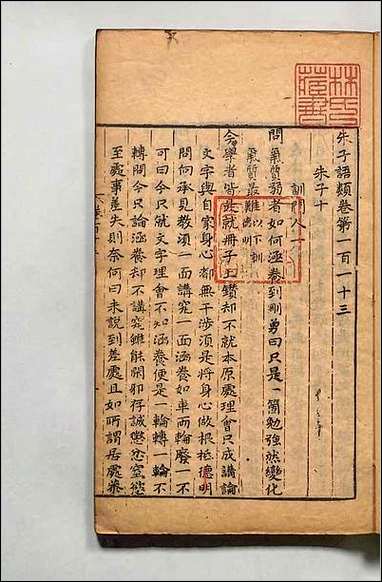 朱子語類卷第一百一十三
朱子十
訓門人一
問氣質弱者如何涵養到剛勇曰只是一箇勉強然變化
氣質最難以下訓德明
今學者皆是就冊子上鑽却不就本原處理會只成講論
文字與自家身心都無干涉須是將身心做根柢德明
問向承見教須一面講究一面涵養如車兩輪廢一不
可曰今只就文字理會不知涵養便是一輪轉一輪不
轉問今只論涵養却不講究雖能閑邪存誠懲忿窒慾
至處事差失則奈何曰未說到差處且如所謂居處恭
林氏藏書